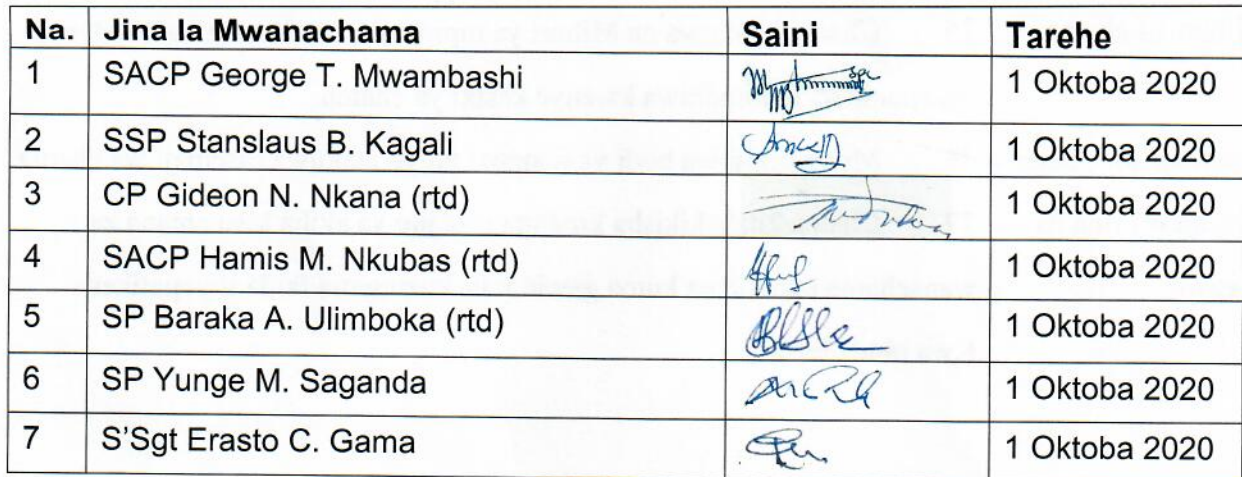 Na. Jina la Mwanachama Saini Tarehe
1 SACP George T. Mwambashi 1 Oktoba 2020
2 SSP Stanslaus B. Kagali 1 Oktoba 2020
3 CP Gideon N. Nkana (rtd) 1 Oktoba 2020
4 SACP Hamis M. Nkubas (rtd) 1 Oktoba 2020
5 SP Baraka A. Ulimboka (rtd) 1 Oktoba 2020
6 SP Yunge M. Saganda 1 Oktoba 2020
7 S'Sgt Erasto C. Gama 1 Oktoba 2020